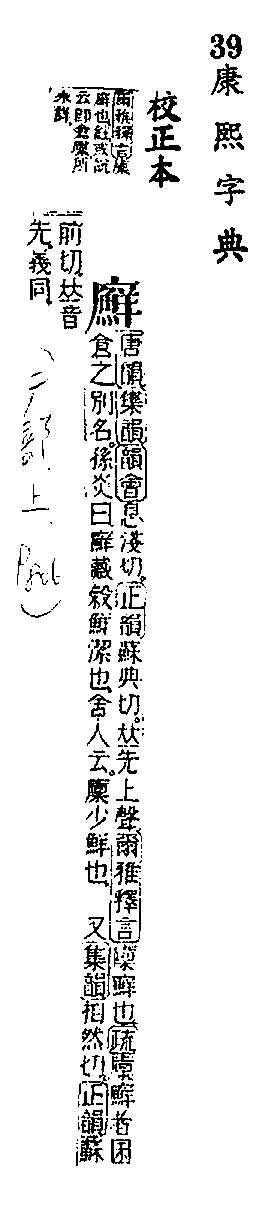 39
康熙字典
校正本
爾雅釋言廩
廯也註或說
云即倉廩所
未詳
廯
唐韻集韻韻會息淺切正韻蘇典切𠀤先上聲爾雅釋言廩廯也疏廩廯者囷
倉之別名孫炎曰廯藏穀鮮潔也舍人云廩少鮮也又集韻相然切正韻蘇
前切𠀤音
先義同
部上